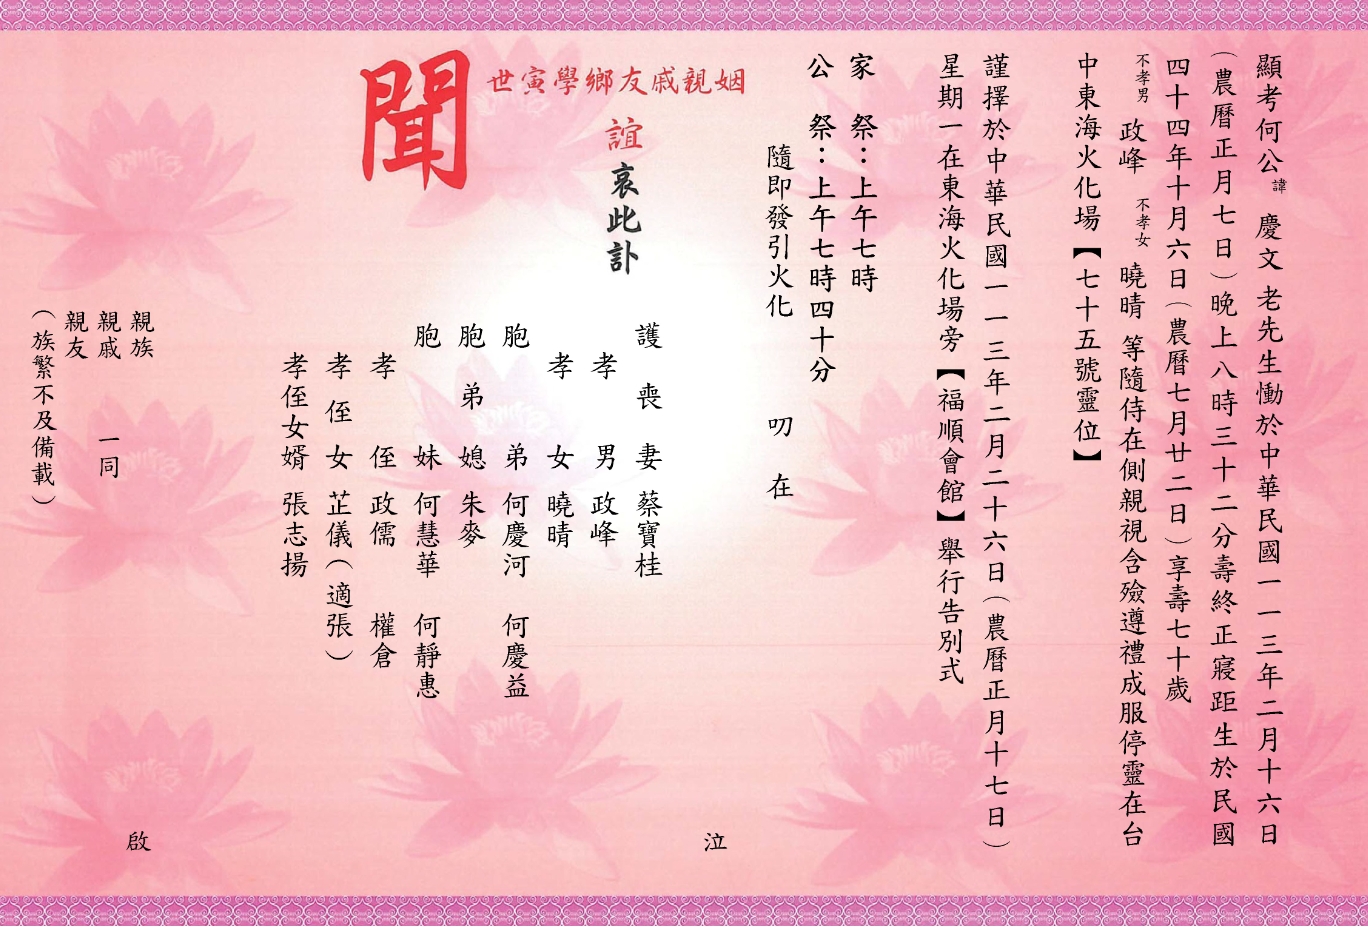 顯考何公諱慶文老先生慟於中華民國一一三年二月十六日
（農曆正月七日）晚上八時三十二分壽終正寢距生於民國
四十四年十月六日（農曆七月廿二日）享壽七十歲
不孝男政峰不孝女曉晴等隨侍在側親視含殮遵禮成服停靈在台
中東海火化場【七十五號靈位】
謹擇於中華民國一一三年二月二十六日（農曆正月十七日）
星期一在東海火化場旁【福順會館】舉行告別式
家祭：上午七時
公祭：上午七時四十分
隨即發引火化　叨在
姻親戚友鄉學寅世
誼哀此訃
聞
護喪妻蔡寶桂
孝男政峰
孝女曉晴
胞弟何慶河　何慶益
胞弟媳朱麥
胞妹何慧華　何靜惠
孝侄政儒　權倉
孝侄女芷儀（適張）
孝侄女婿張志揚
泣
親族
親戚　一同
親友
（族繁不及備載）
啟